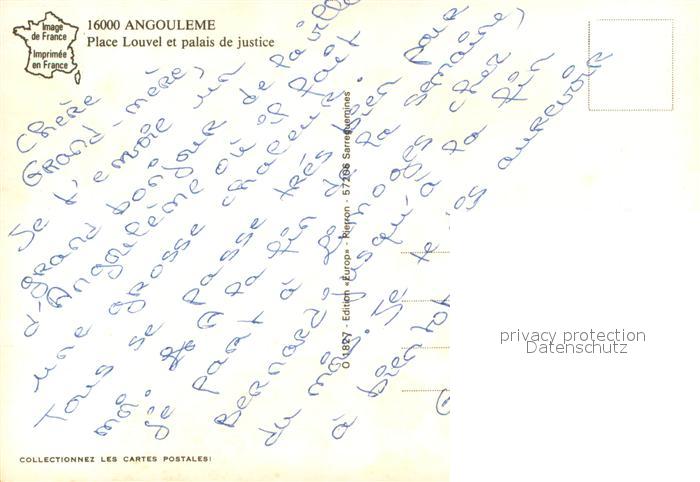 Image
de France
Imprimée
en France
16000 ANGOULEME
Place Louvel et palais de justice
Chère
Grand-mère,
Je t'envoie un
grand bonjour de la ville
d'Angoulème où il fait
une grosse chaleur.
Tous se passe très bien pour
moi. à la fin de la semaine,
Je part à Limoges cher
Bernard jusqu'à la fin
du mois. Je te dis aurevoir
à bientôt
O 1827 - Edition «Europ» - Pierron - 57206 Sarreguemines
privacy protection
Datenschutz
COLLECTIONNEZ LES CARTES POSTALES!